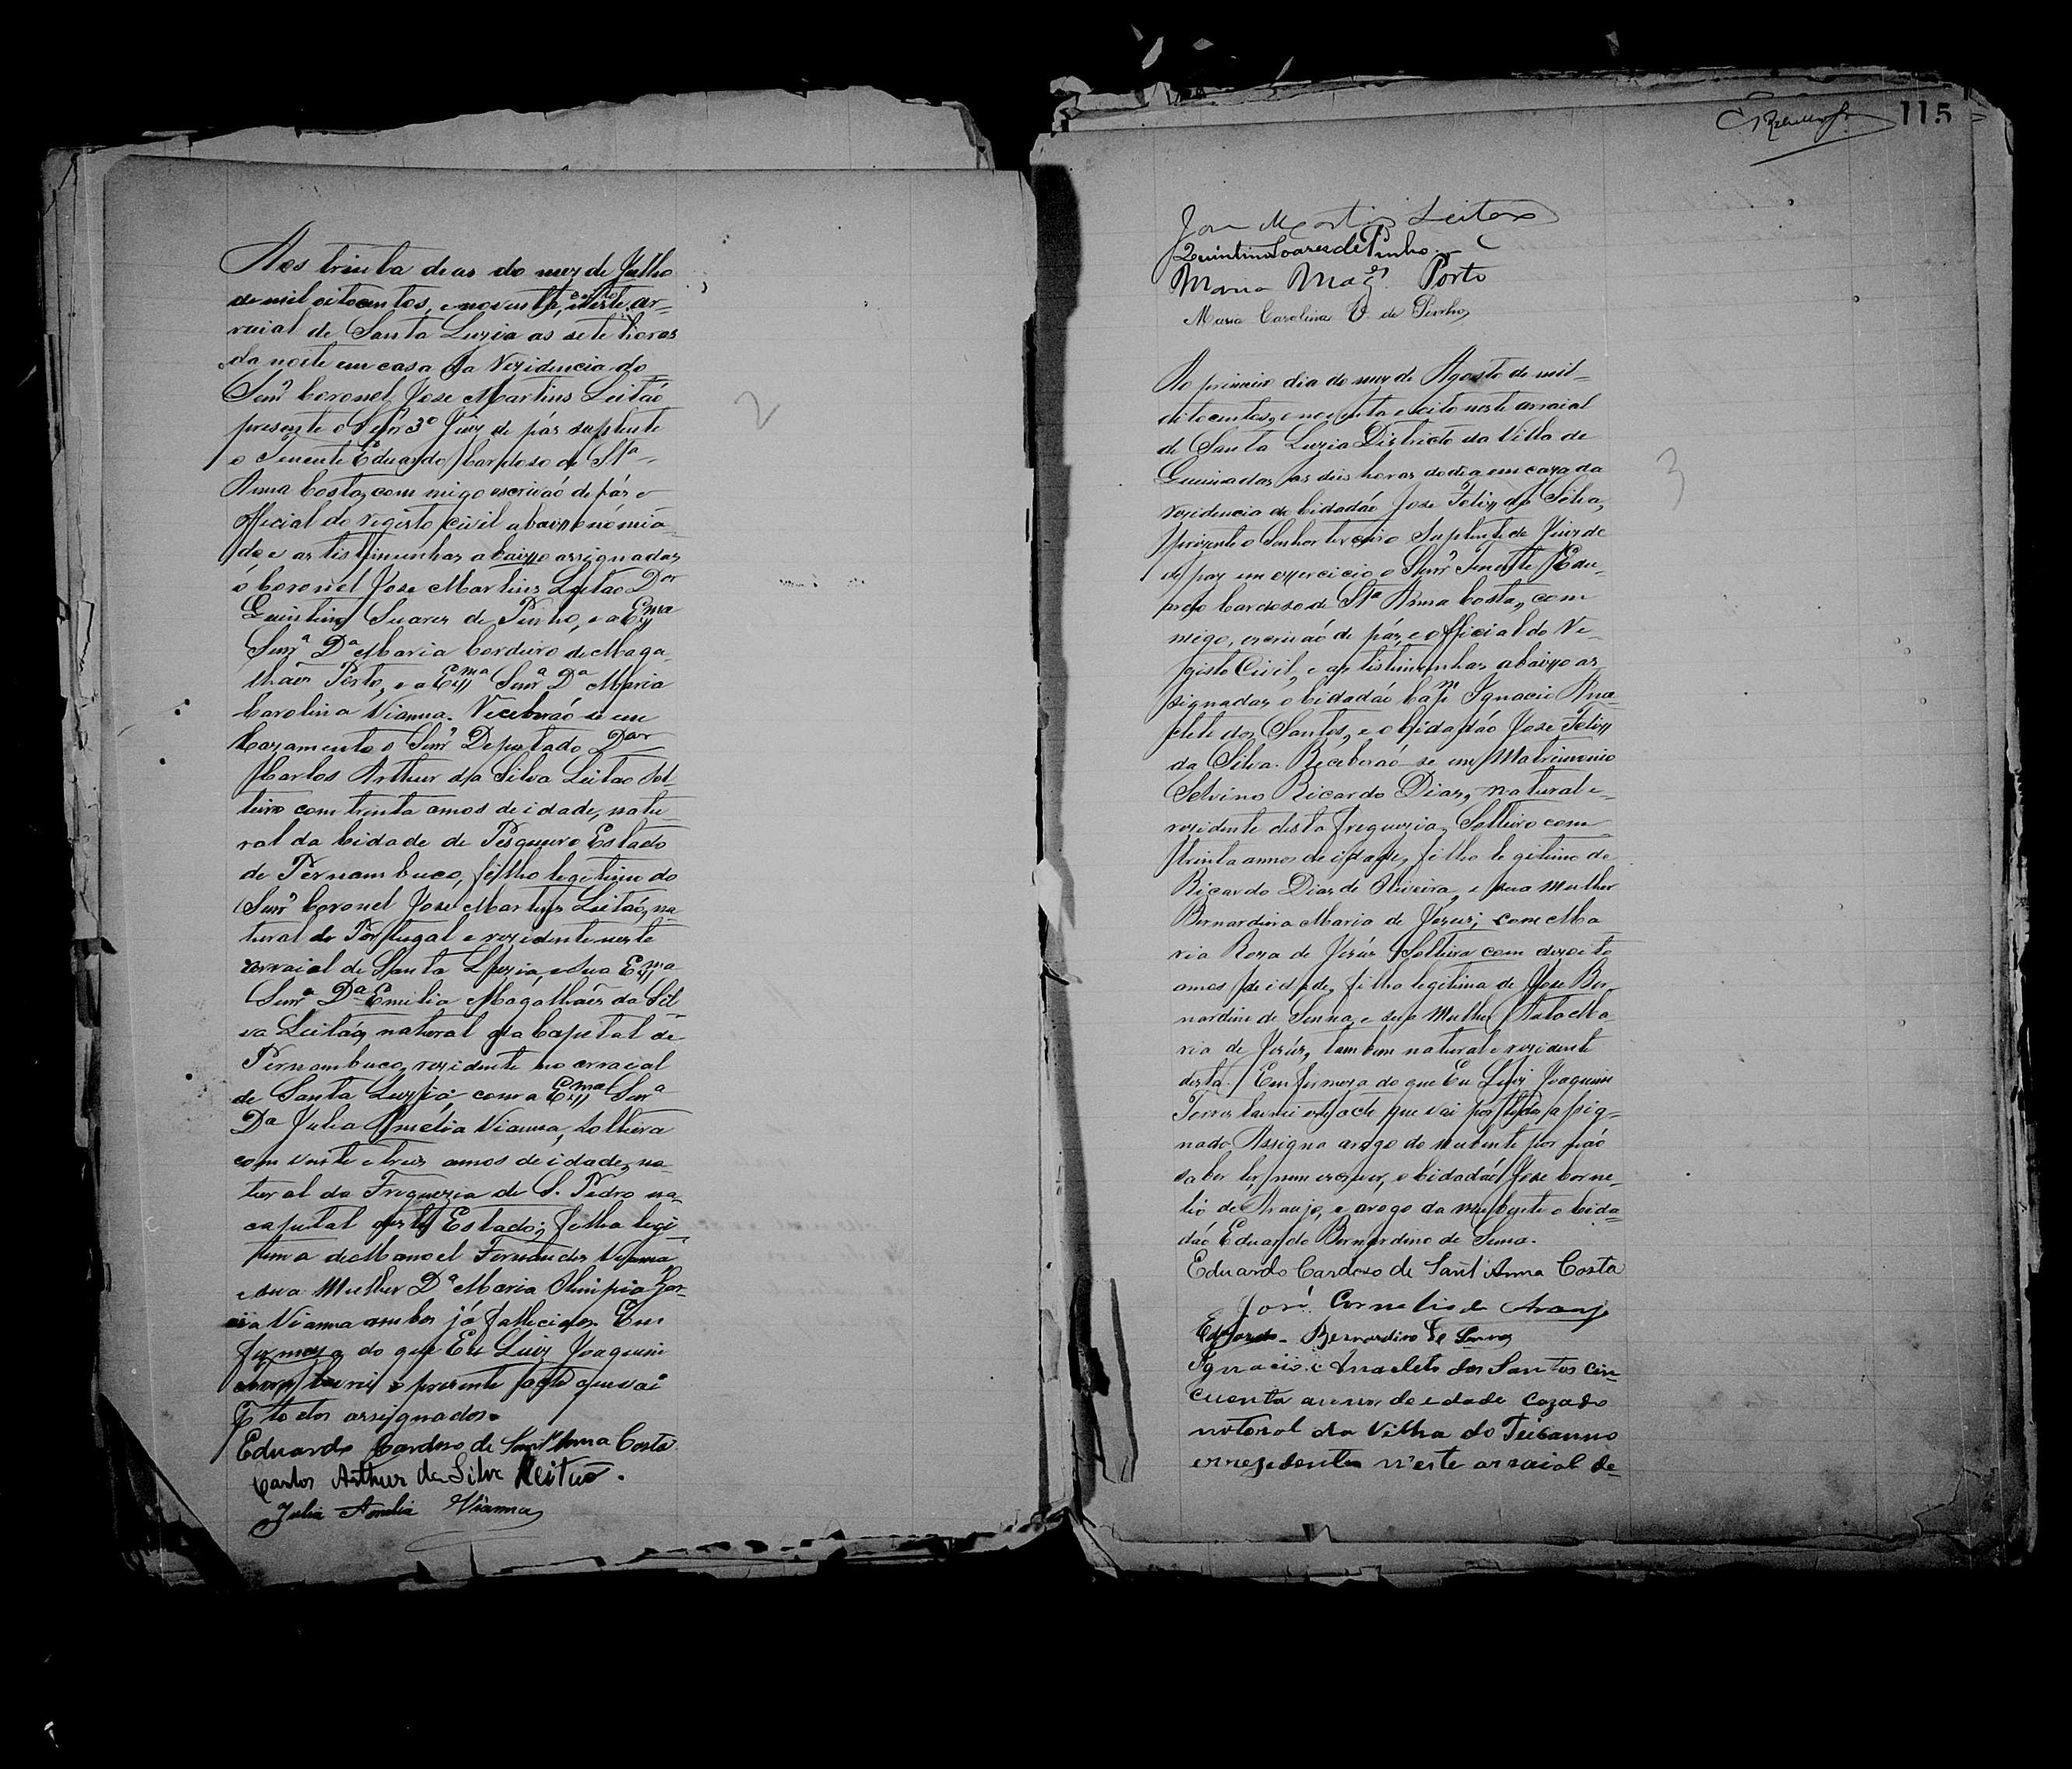 Aos trinta dias do mez de Julho
de mil oitocentos, e noventa, e oito neste ar-
raial de Santa Luzia as sete horas
da noite em casa da Rezidencia do
Senr. Coronel Jose Martins Leitaõ
presente o Senr. 3º Juiz de pás suplente
o Tenente Eduardo Cardoso de Stª
Anna Costa, com migo escrivaõ de pás e
Official do registo civil abaixo nomia-
do, e as tistimunhas abaixo assignadas
o Coronel Jose Martins Leitaõ Dor
Quintino Suares de Pinho, e a Exma
Senrª Dª Maria Cordeiro de Maga-
lhaes Porto, e a Exma Senrª Dª Maria
Carolina Vianna. Receberaõ se em
Cazamento o Senr. Deputado Dor
Carlos Arthur da Silva Leitaõ Sol-
teiro com trinta annos de idade, natu-
ral da Cidade de Pesqueiro Estado
de Pernambuco, filho legitimo do
Senr. Coronel Jose Martins Leitaõ, na-
tural de Portugal e rezidente neste
arraial de Santa Luzia, e sua Exma
Senrª Dª Emilia Magalhães da Sil-
va Leitaõ, natural da Capital de
Pernambuco, rezidente no arraial
de Santa Luzia; com a Exma Senrª
Dª Julia Amelia Vianna, Solteira
com vinte e treis annos de idade, na-
tural da Freguezia de S. Pedro na
capital deste Estado; filha legi-
tima de Manoel Fernandes Vianna
e sua Mulher Dª Maria Olimpia Gar-
cia Vianna ambos já fallecidos. Em
firmeza do que Eu Luiz Joaquim
Torres lavrei o presente acto que vai
p todos assignados.
Eduardo Cardoso de Sant'Anna Costa
Carlos Arthur da Silva Leitão.
Julia Amelia Vianna
115
Jose Martins Leitão
Quintino Soares de Pinho
Maria Mag.es Porto
Maria Carolina V. de Pinho
Ao primeiro dia do mez de Agosto de mil
oitocentos, e noventa e oito neste arraial
de Santa Luzia Districto da Villa de
Queimadas, as dois horas do dia em caza da
rezidencia do Cidadão Jose Felix da Silva,
prezente o Senhor terceiro Suplente de Juiz de
de paz em exercicio o Senr. Tenente Edu-
ardo Cardoso de Stª Anna Costa, com
migo, escrivaõ de páz, e official do Re-
gisto Civil, e as tistimunhas abaixo as-
signadas o Cidadão Capm Ignacio Ana-
cleto dos Santos, e o Cidadão Jose Felix
da Silva. Receberaõ se em Matrimonio
Selvino Ricardo Dias, natural e
rezidente desta freguezia, Solteiro com
trinta annos de idade, filho legitimo de
Ricardo Dias de Oliveira, e sua Mulher
Bernardina Maria de Jesus; com Ma
ria Roza de Jesús Solteira com dezoito
annos de idade, filha legitima de Jose Ber-
nardino de Senna, e sua Mulher Ma
ria de Jesús, tambem natural e rezidente
desta. Em firmeza do que Eu Luiz Joaquim
Torres lavrei este acto que vai por todos assig-
nado. Assigna arogo do nubente por não
saber ler, nem escrever, o Cidadaõ Jose Corne-
lio de Araujo, e arogo da nubente o Cida-
dão Eduardo Bernardino de Senna.
Eduardo Cardoso de Sant'Anna Costa
José Cornelio de Araujo
Eduardo Bernardino de Senna
Ignacio Anacleto dos Santos cin-
cuenta annos de edade cazado
natoral da Villa do Tucanno
e rezedente n'este arraial de-
2
3